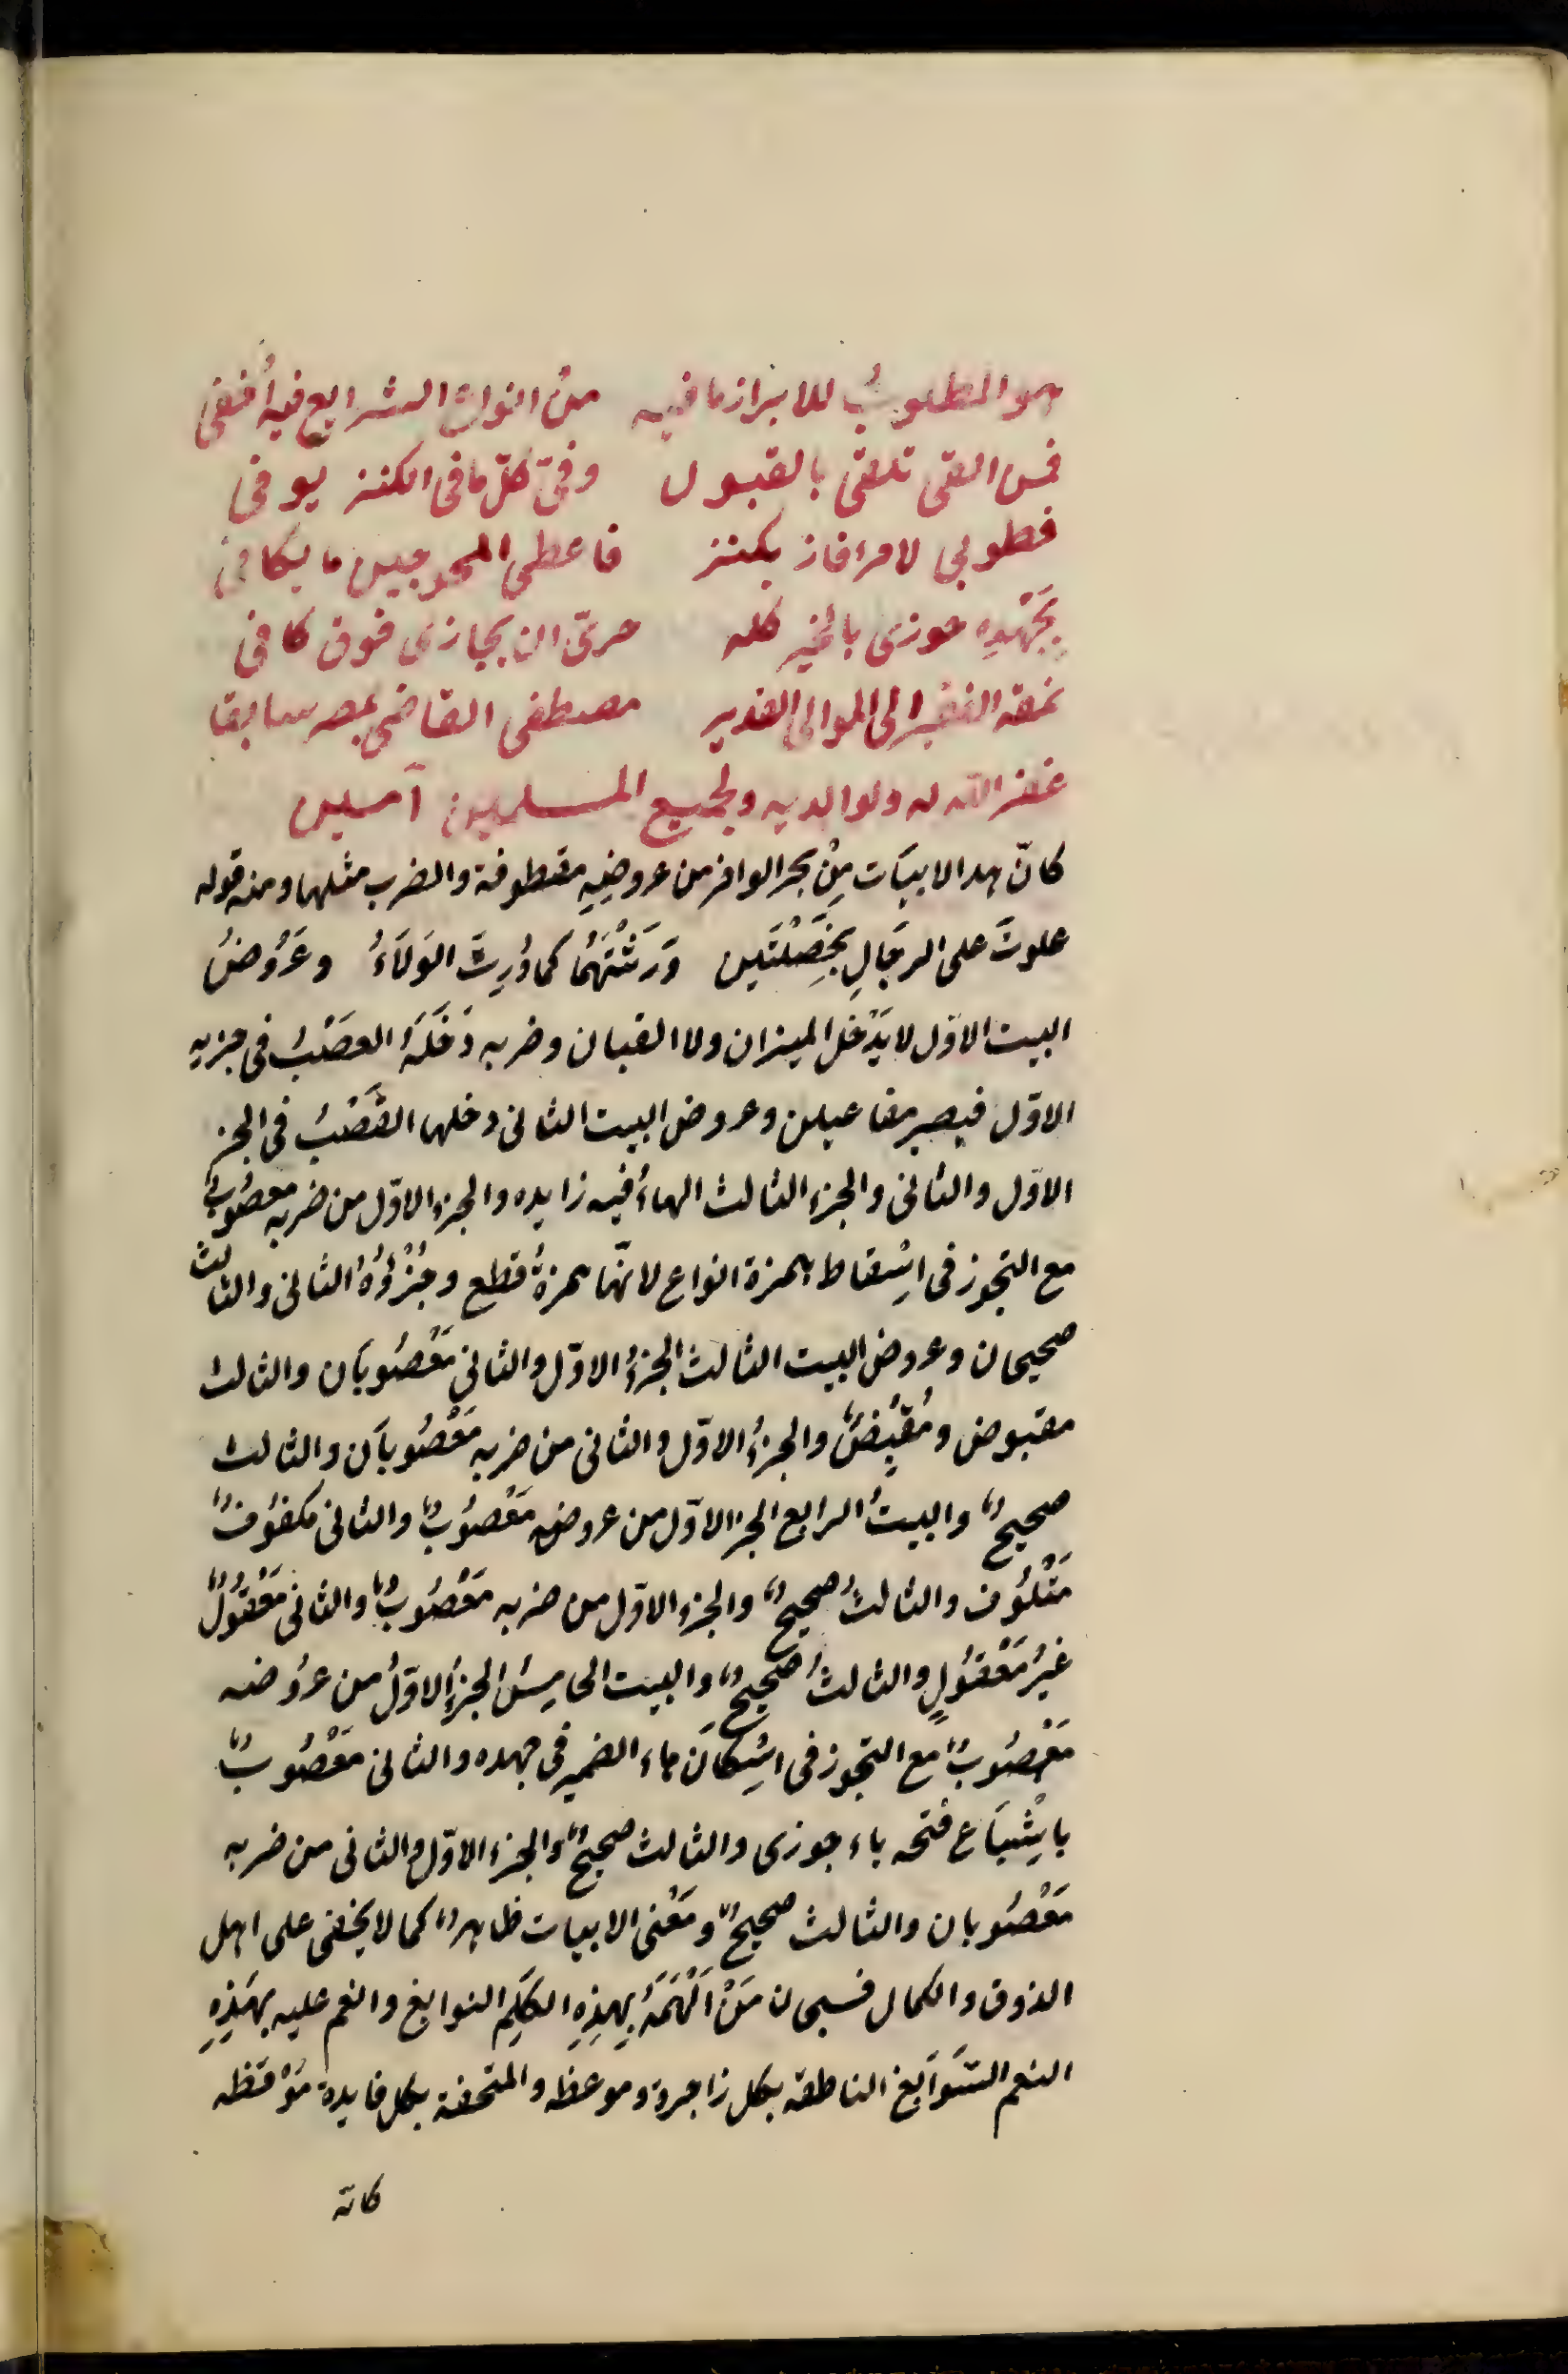 هو المطلوبُ للابراز ما فيه من انواع الشرايع فيه أخفى
فمن القى تلقى بالقبول وفىّ كلّ ما فى الكنز يوفى
فطوبى لامرء فاز بكنز فاعطى المحوجين ما يكافى
بجَهْدِه جوزى بالخير كله حرىّ ان يجازى فوق كافى
نمقه الفقير الى الموالى القدير مصطفى القاضى بمصر سابقا
غفر الله له ولوالديه ولجميع المسلمين آمين
كانّ هذ الابيَات مِنْ بحر الوافر من عروضِهِ مقطوفة والضرب مثلها ومنه قوله
علوتَ على الرجَالِ بخَصْلتَين وَرَثْتَهُمَا كما وُرِثَ الوَلَاءُ وعَرُوضُ
البيت الاوّل لا يَدْخل الميزان ولا القبان وضربه دَخَلَهُ العصَبُ فى جزيه
الاوّل فيصير مفاعيلن وعروض البيت الثانى دخلها العَصَبُ فى الجز
الاوّل والثانى والجزء الثالث الهاءُ فيه زايده والجزء الاوّل من ضربه معصُوبٌ
مع التجوز فى اسِقاط همزة انواع لانّها همزةُ قطع وجُزْؤُهُ الثانى والثالث
صحيحان وعروض البيت الثالث الجزءُ الاوّل والثانى مَعْصُوبَان والثالث
مقبوض ومُقبِضٌ والجزءُ الاوّل والثانى من ضربه مَعْصُوبَان والثالث
صحيحٌ والبيتُ الرابع الجز الاوّل من عروضه مَعْصُوبٌ والثانى مكفوُفٌ
مَتْلُوف والثالثُ صحيحٌ والجزء الاوّل من ضربه مَعْصُوبٌ والثانى مَعْقُولٌ
غيرُ مَعْقُولٍ والثالثُ صحيحٌ والبيت الخامِسُ الجزءُ الاوّلُ من عرُوضه
مَعْصُوبٌ مع التجوز فى اسْكَان هاء الضمير فى جهده والثانى مَعْصُوبٌ
باِشْبَاع فتحه ياء جوزى والثالث صحيحٌ والجزء الاوّل والثانى من ضربه
مَعْصُوبان والثالث صحيحٌ ومَعْنى الابيات ظاهرٌ كما لا يَخفى على اهل
الذوق والكمال فسبحان مَنْ اَلْهَمَهُ بِهذِهِ الكَلِم النوابغ وانعم عليه بهَذِهِ
النعم السَّوَابغ الناطقه بكل زاجرة وموعظه والمتحفة بكل فايدة مُوْقظه
كانه